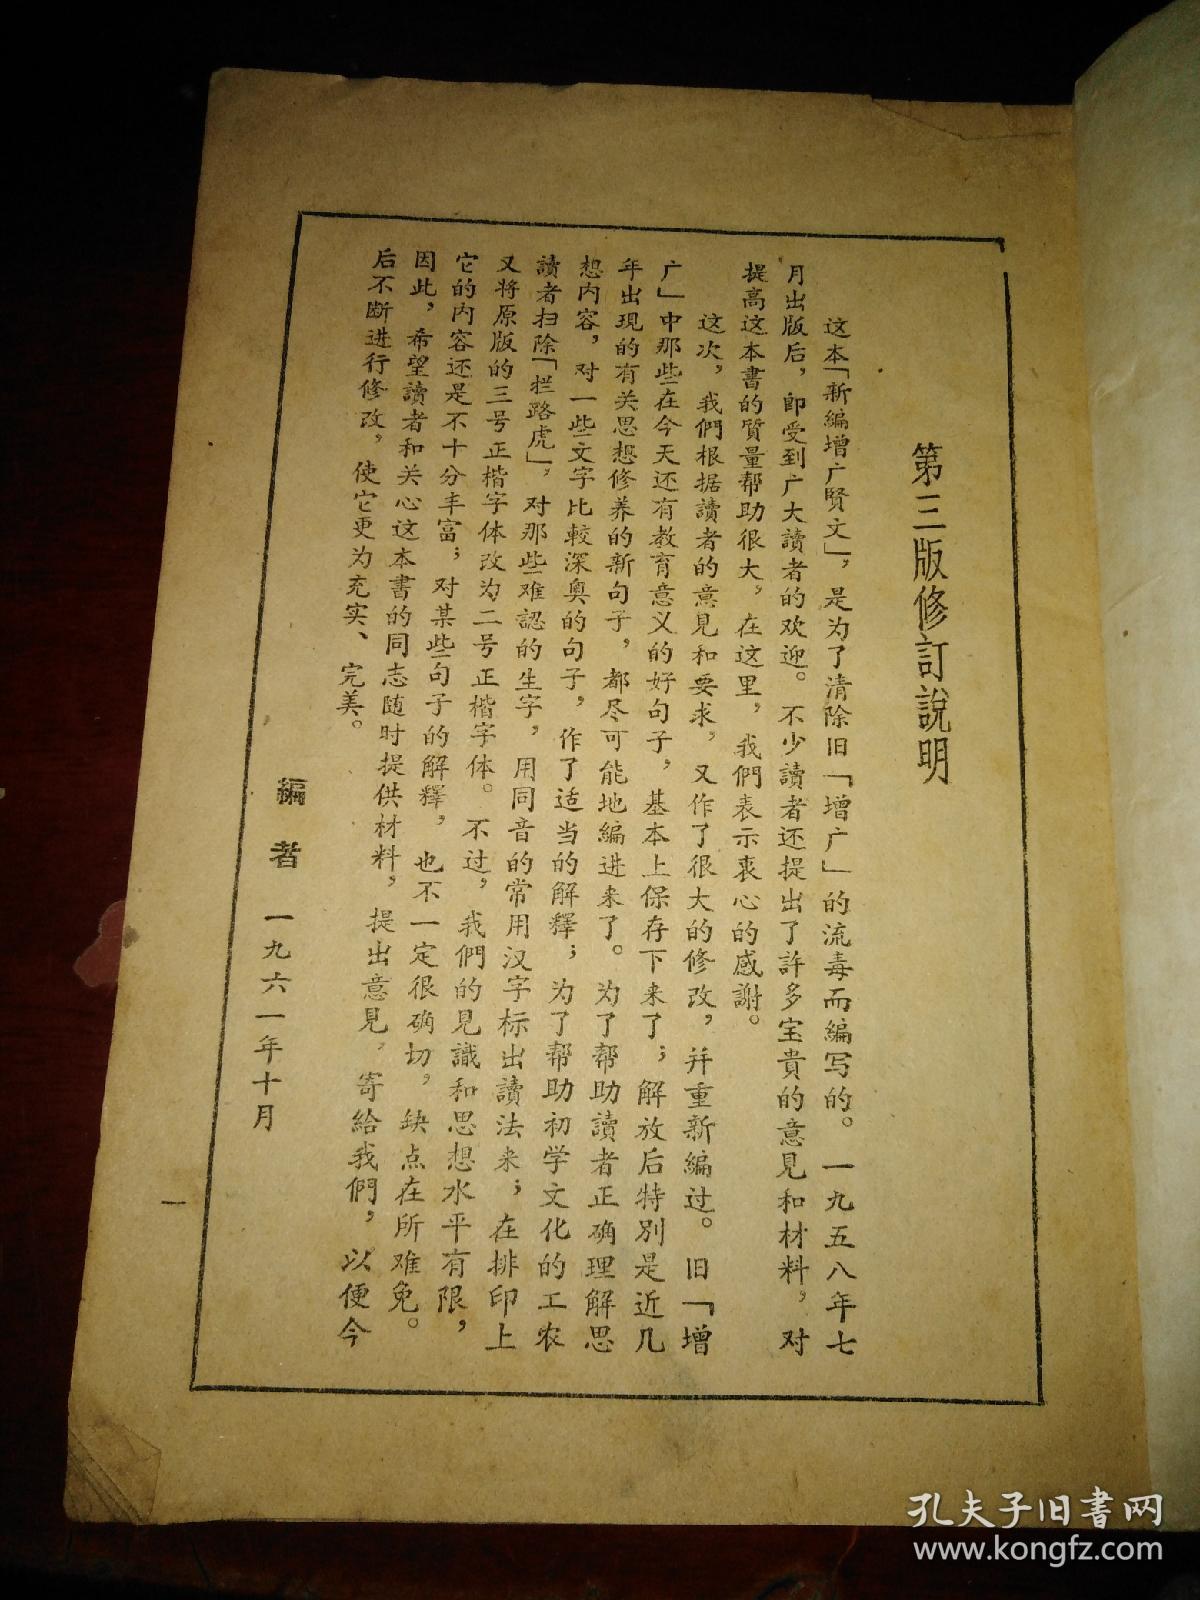 第三版修訂說明
这本「新編增广賢文」，是为了清除旧「增广」的流毒而編写的。一九五八年七
月出版后，即受到广大讀者的欢迎。不少讀者还提出了許多宝貴的意見和材料，对
提高这本書的質量帮助很大，在这里，我們表示衷心的感謝。
这次，我們根据讀者的意見和要求，又作了很大的修改，并重新編过。旧「增
广」中那些在今天还有教育意义的好句子，基本上保存下来了；解放后特別是近几
年出現的有关思想修养的新句子，都尽可能地編进来了。为了帮助讀者正确理解思
想內容，对一些文字比較深奥的句子，作了适当的解釋；为了帮助初学文化的工农
讀者扫除「拦路虎」，对那些难認的生字，用同音的常用汉字标出讀法来；在排印上
又将原版的三号正楷字体改为二号正楷字体。不过，我們的見識和思想水平有限，
它的內容还是不十分丰富；对某些句子的解釋，也不一定很确切，缺点在所难免。
因此，希望讀者和关心这本書的同志随时提供材料，提出意見，寄給我們，以便今
后不断进行修改，使它更为充实、完美。
編者 一九六一年十月
一
孔夫子旧書网
www.kongfz.com